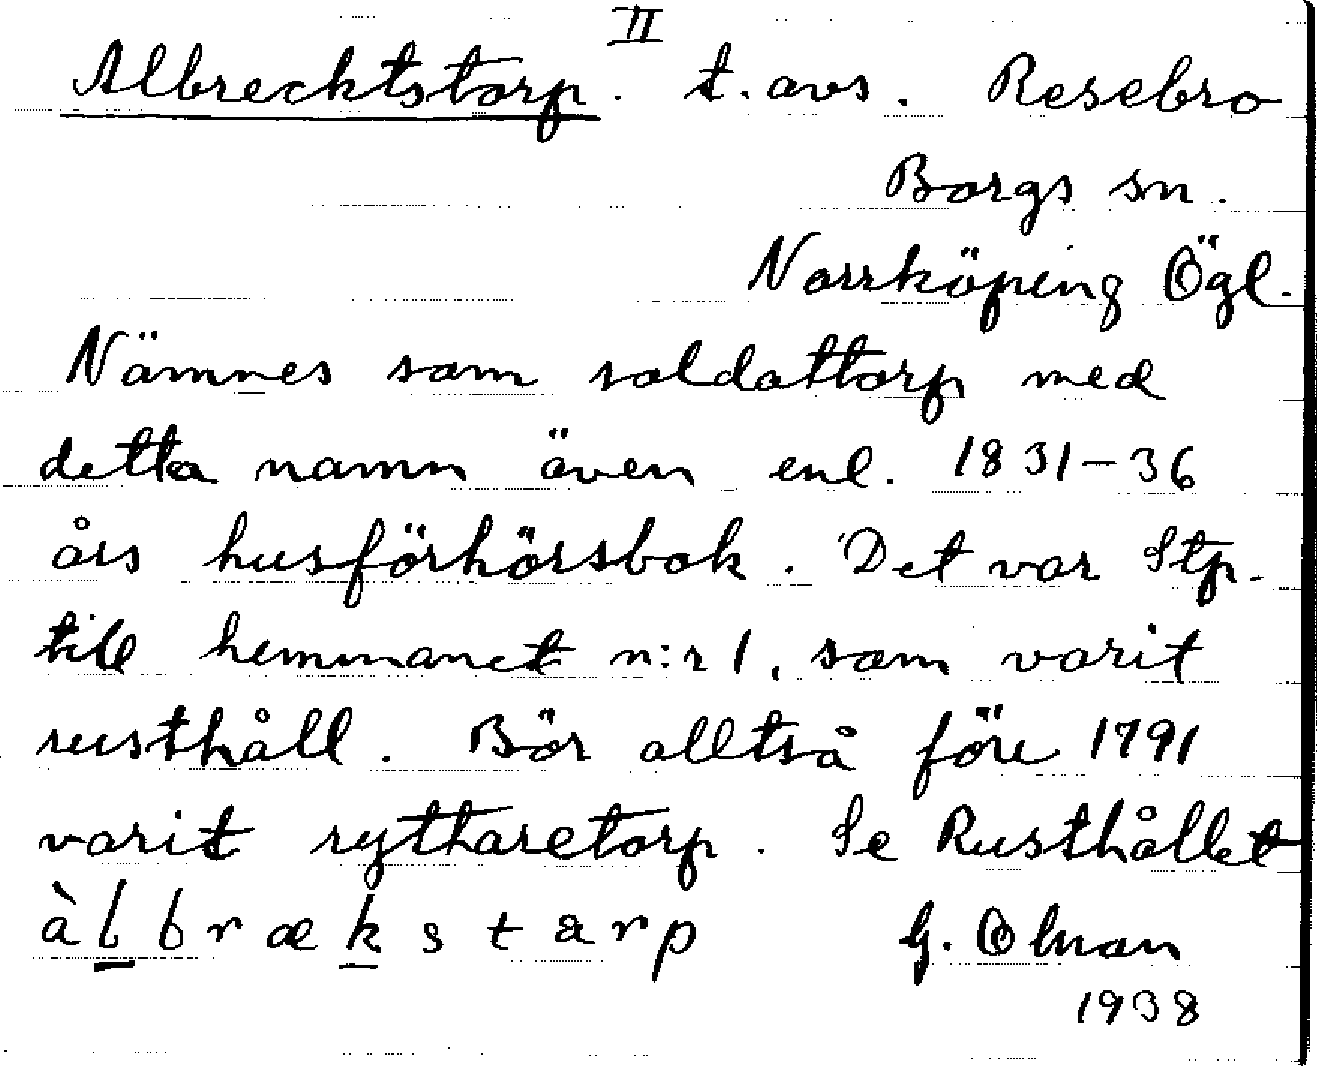 II
Albrecktstorp. t. avs. Resebro
Borgs sn.
Norrköping Ögl.
Nämnes som soldattorp med
detta namn även enl. 1831-36
års husförhörsbok. Det var Stp.
till hemmanet n:r 1, som varit
rusthåll. Bör alltså före 1791
varit ryttaretorp. Se Rusthållet
àlbrækstarp G. Olman
1938